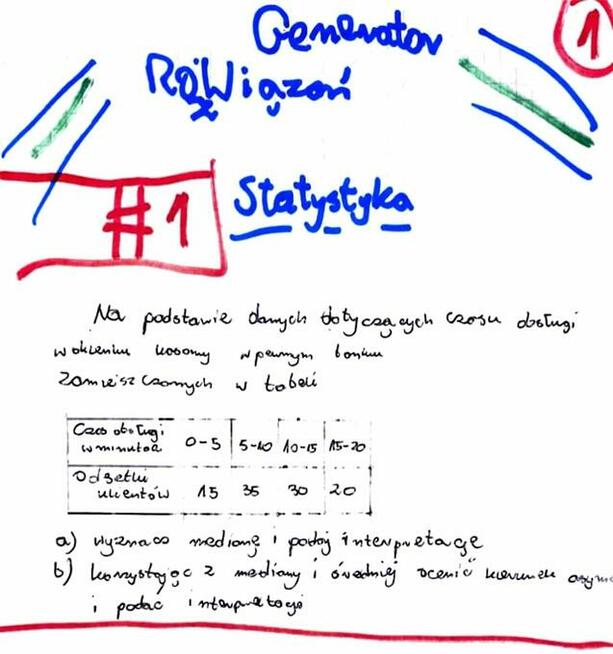 1
Generator
Rozwiązań
#1 Statystyka
Na podstawie danych dotyczących czasu obsługi
w okienku kasowym w pewnym banku
zamieszczonych w tabeli
Czas obsługi w minutach 0-5 5-10 10-15 15-20
Odsetki klientów 15 35 30 20
a) wyznacz medianę i podaj interpretację
b) korzystając z mediany i średniej ocenić kierunek
i podać interpretację